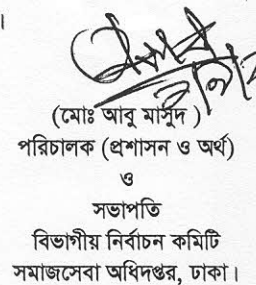 ।
(মোঃ আবু মাসুদ )
পরিচালক (প্রশাসন ও অর্থ)
ও
সভাপতি
বিভাগীয় নির্বাচন কমিটি
সমাজসেবা অধিদপ্তর, ঢাকা।